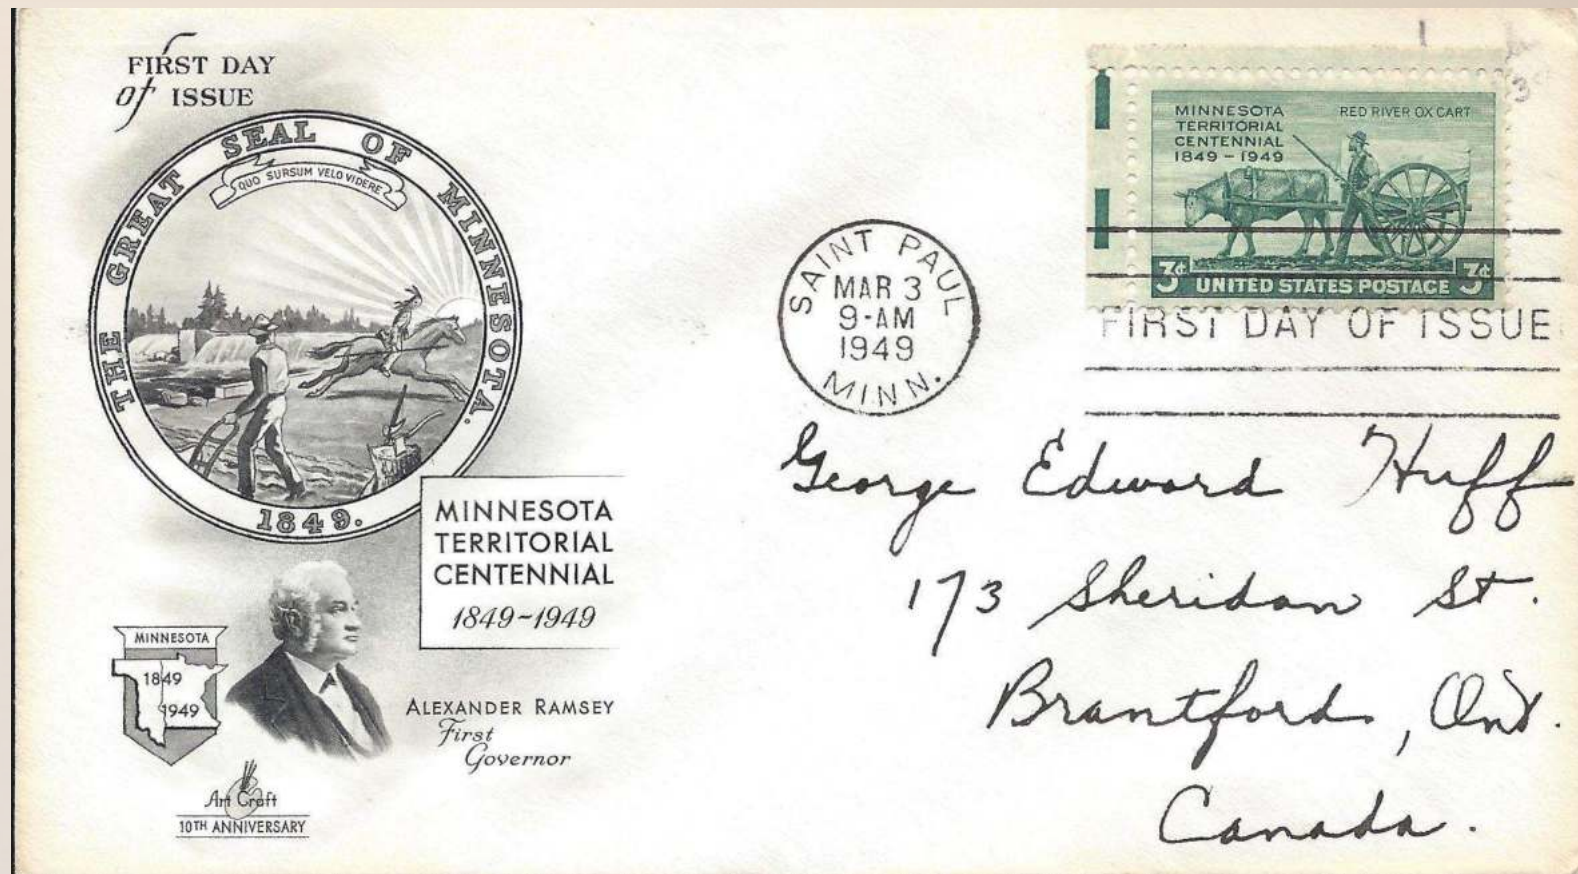 FIRST DAY
of ISSUE
THE GREAT SEAL OF MINNESOTA.
QUO SURSUM VELO VIDERE
1849.
MINNESOTA
TERRITORIAL
CENTENNIAL
1849~1949
MINNESOTA
1849
1949
ALEXANDER RAMSEY
First
Governor
Art Craft
10TH ANNIVERSARY
SAINT PAUL
MAR 3
9-AM
1949
MINN.
MINNESOTA
TERRITORIAL
CENTENNIAL
1849-1949
RED RIVER OX CART
3¢ UNITED STATES POSTAGE 3¢
FIRST DAY OF ISSUE
George Edward Huff
173 Sheridan St.
Brantford, Ont.
Canada.